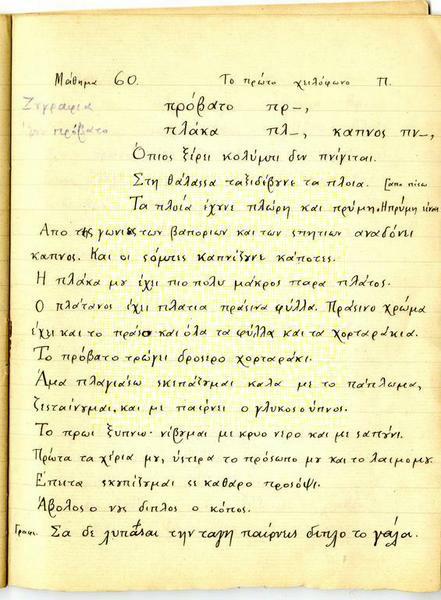 Μάθημα 60. Το πρώτο χειλόφωνο Π.
Ζυγραφια πρόβατο πρ–,
πρόβατο πλάκα πλ–, καπνος πν–,
Όπιος ξέρει κολύμπι δεν πνίγιται.
Στη θάλασσα ταξιδέβυνε τα πλοια. [απο πίσω
Τα πλοία έχυνε πλώρη και πρύμη. Η πρύμη είναι
Απο τις γωνιες των βαποριων και των σπητιων αναδόνει
καπνος. Και οι σόμπες καπνίζυνε κάποτες.
Η πλάκα μυ έχει πιο πολυ μάκρος παρα πλάτος.
Ο πλάτανος έχει πλατια πράσινα φύλλα. Πράσινο χρώμα
έχει και το πράσο και όλα τα φύλλα και τα χορταράκια.
Το πρόβατο τρώγει δροσερο χορταράκι.
Άμα πλαγιάσω σκεπάζυμαι καλα με το πάπλωμα,
ζεσταίνυμαι, και με παίρνει ο γλυκος ο ύπνος.
Το πρωι ξυπνω· νίβυμαι με κρυο νερο και με σαπύνι.
Πρώτα τα χέρια μυ, ύστερα το πρόσωπο μυ και το λαιμο μυ.
Έπειτα σκυπίζυμαι σε καθαρο προσόψι.
Άβολος ο νυς διπλος ο κόπος.
Γραφη. Σα δε λυπάσαι την ταγη παίρνεις διπλο το γάλα.